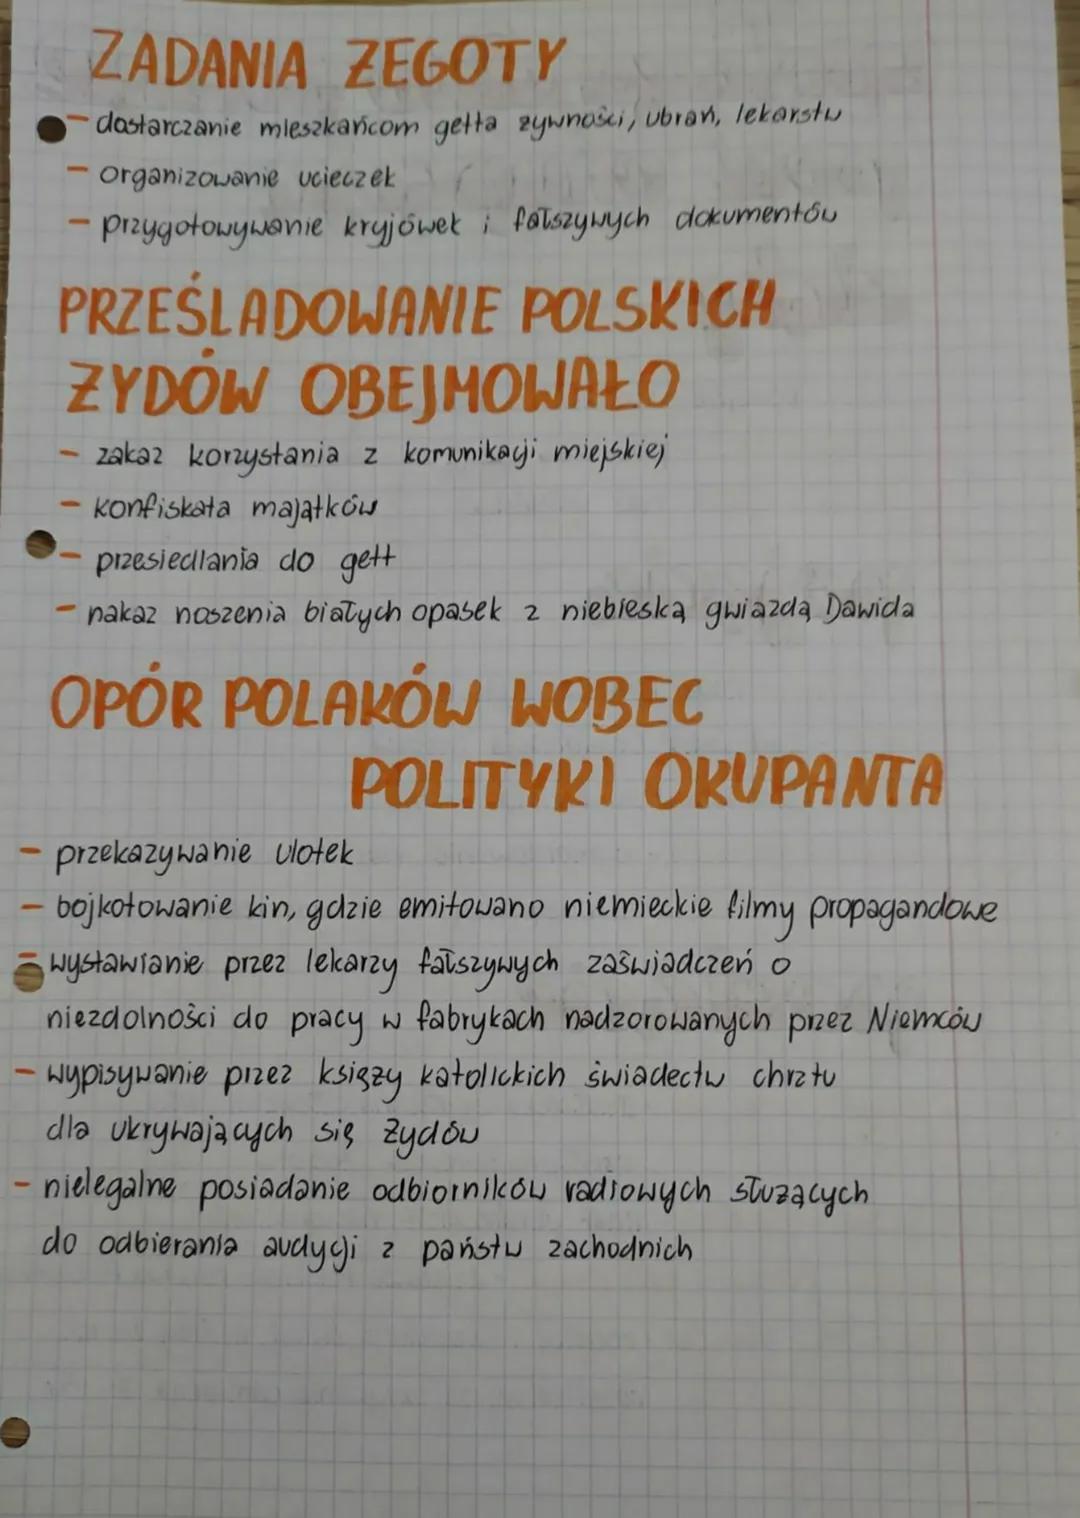 ZADANIA ŻEGOTY
- dostarczanie mieszkańcom getta żywności, ubrań, lekarstw
- organizowanie ucieczek
- przygotowywanie kryjówek i fałszywych dokumentów
PRZEŚLADOWANIE POLSKICH
ŻYDÓW OBEJMOWAŁO
- zakaz korzystania z komunikacji miejskiej
- konfiskata majątków
- przesiedlania do gett
- nakaz noszenia białych opasek z niebieską gwiazdą Dawida
OPÓR POLAKÓW WOBEC
POLITYKI OKUPANTA
- przekazywanie ulotek
- bojkotowanie kin, gdzie emitowano niemieckie filmy propagandowe
- wystawianie przez lekarzy fałszywych zaświadczeń o
niezdolności do pracy w fabrykach nadzorowanych przez Niemców
- wypisywanie przez księży katolickich świadectw chrztu
dla ukrywających się Żydów
- nielegalne posiadanie odbiorników radiowych służących
do odbierania audycji z państw zachodnich